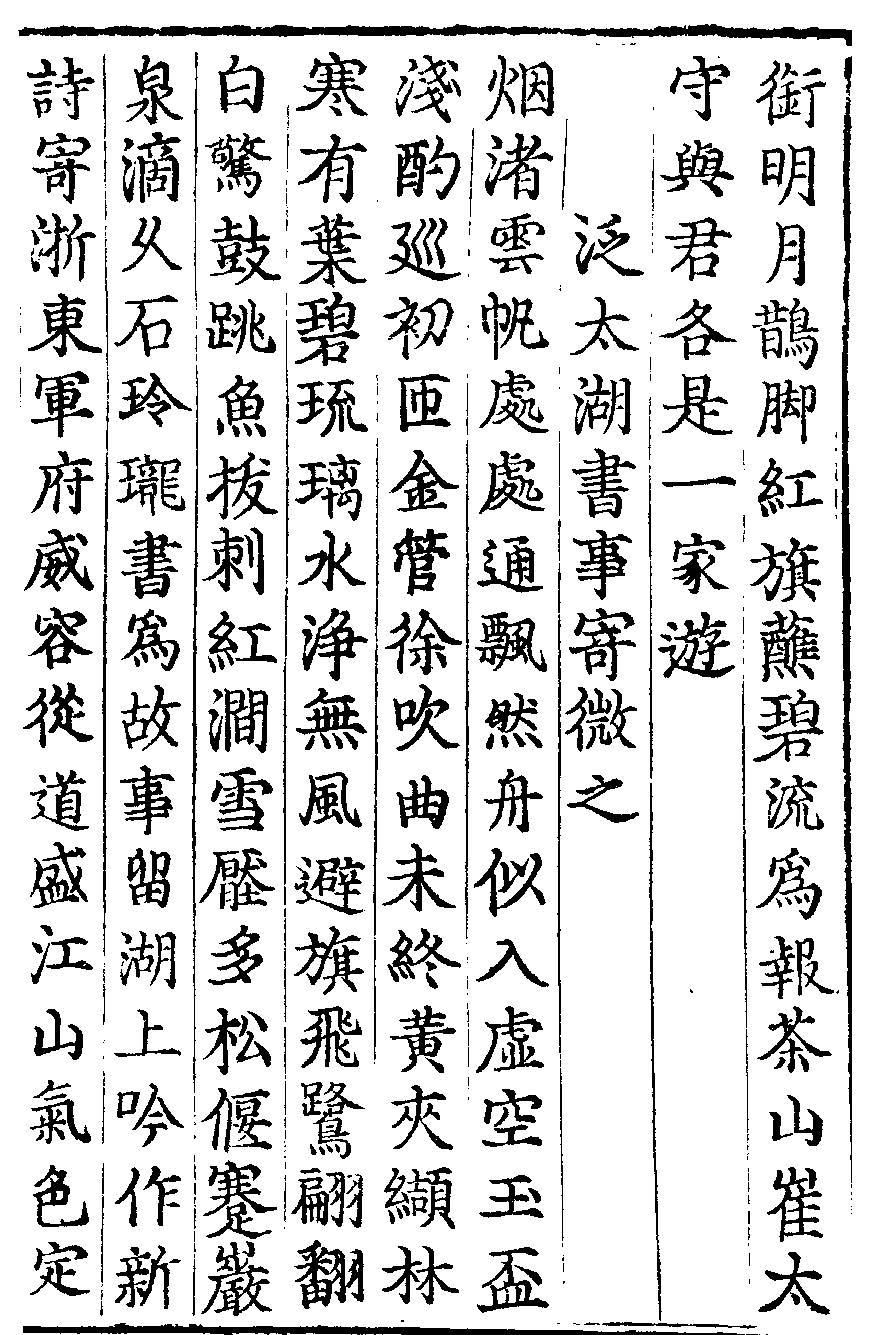 銜明月鵲脚紅旗蘸碧流爲報茶山崔太
守與君各是一家遊
泛太湖書事寄微之
烟渚雲帆處處通飄然舟似入虛空玉盃
淺酌巡初匝金管徐吹曲未終黄夾纈林
寒有葉碧琉璃水浄無風避旗飛鷺翩翻
白驚鼓跳魚拔刺紅澗雪壓多松偃蹇巖
泉滴久石玲瓏書爲故事留湖上吟作新
詩寄浙東軍府威容從道盛江山氣色定